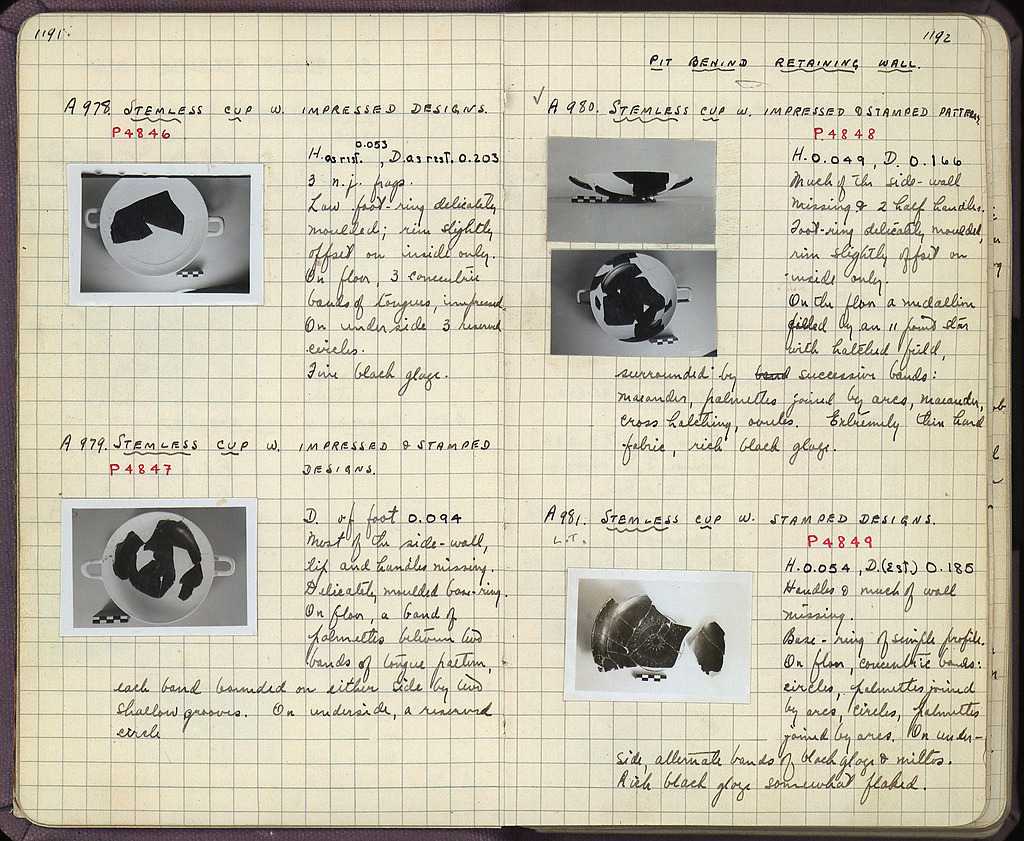 1191.
A 978. STEMLESS CUP W. IMPRESSED DESIGNS.
P 4846
0.053
H. as rest. , D. as rest. 0.203
3 n.j. frags.
Low foot-ring delicately
moulded; rim slightly
offset on inside only.
On floor, 3 concentric
bands of tongues, impressed.
On underside 3 reserved
circles.
Fine black glaze.
A 979. STEMLESS CUP W. IMPRESSED & STAMPED
DESIGNS.
P 4847
D. of foot 0.094
Most of the side-wall,
lip and handles missing.
Delicately moulded base-ring.
On floor, a band of
palmettes between two
bands of tongue pattern,
each band bounded on either side by two
shallow grooves. On underside, a reserved
circle
1192
PIT BEHIND RETAINING WALL.
✓ A 980. STEMLESS CUP W. IMPRESSED & STAMPED PATTERN.
P 4848
H. 0.049, D. 0.166
Much of the side-wall
missing & 2 half handles.
Foot-ring delicately moulded,
rim slightly offset on
inside only.
On the floor a medallion
filled by an 11 point star
with hatched field,
surrounded by band successive bands:
maeander, palmettes joined by arcs, maeander,
cross hatching, ovules. Extremely thin hard
fabric, rich black glaze.
A 981. STEMLESS CUP W. STAMPED DESIGNS.
L.T.
P 4849
H. 0.054, D. (Est.) 0.185
Handles & much of wall
missing.
Base-ring of simple profile.
On floor, concentric bands:
circles, palmettes joined
by arcs, circles, palmettes
joined by arcs. On under-
side, alternate bands of black glaze & miltos.
Rich black glaze somewhat flaked.